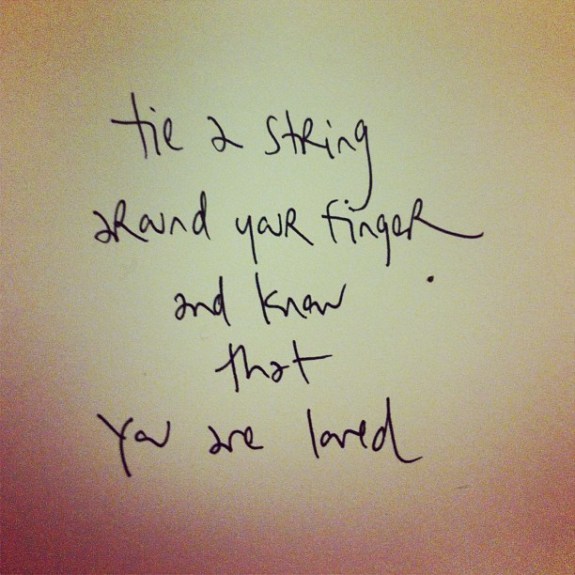 tie a string
around your finger
and know
that
you are loved